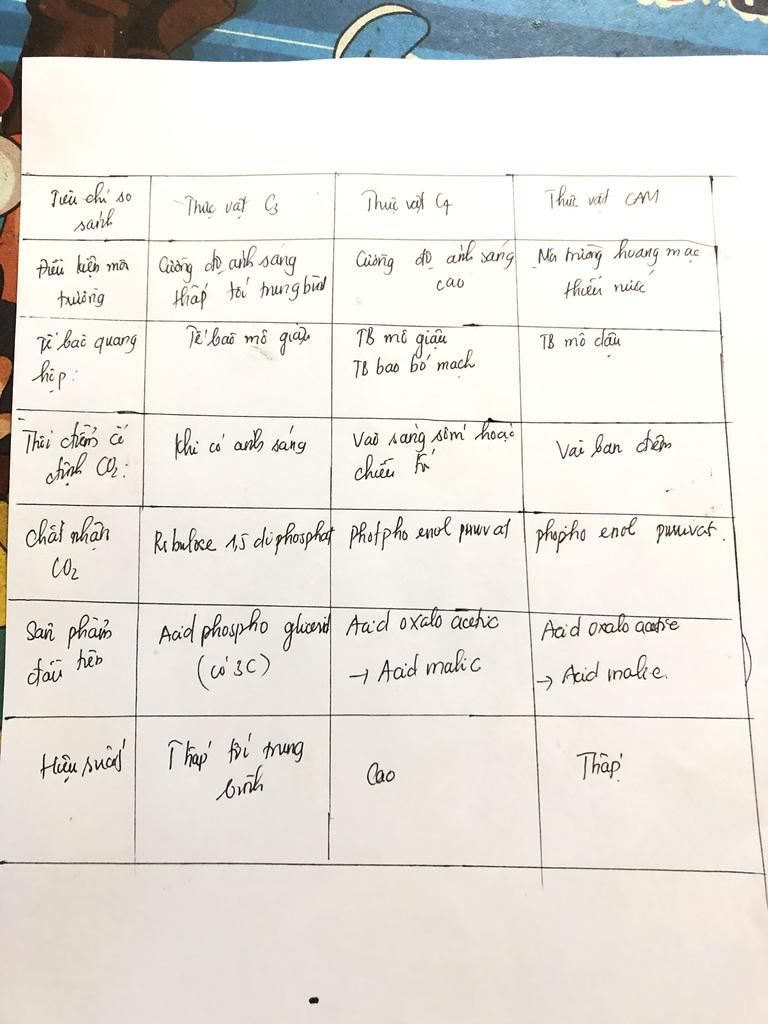 Tiêu chí so
sánh
Thực vật C3
Thực vật C4
Thực vật CAM
Điều kiện môi
trường
Cường độ ánh sáng
thấp tới trung bình
Cường độ ánh sáng
cao
Môi trường hoang mạc
thiếu nước
Tế bào quang
hợp:
Tế bào mô giậu
TB mô giậu
TB bao bó mạch
TB mô dậu
Thời điểm cố
định CO2:
Khi có ánh sáng
Vào sáng sớm hoặc
chiều
Vào ban đêm
Chất nhận
CO2
Ribulose 1,5 diphosphat
Photpho enol piruvat
phospho enol piruvat.
Sản phẩm
đầu tiên
Acid phospho glicerid
(có 3C)
Acid oxalo acetic
→ Acid malic
Acid oxalo acetic
→ Acid malic.
Hiệu suất
Thấp tới trung
bình
Cao
Thấp